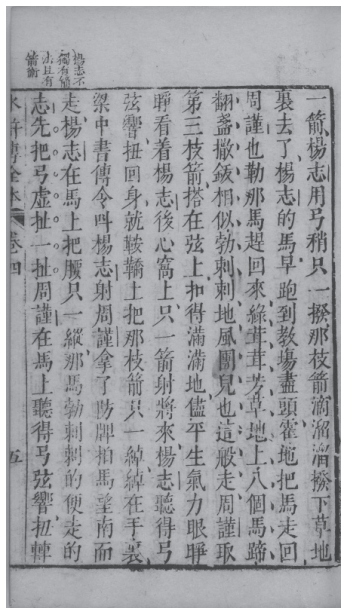 楊志不
獨有鎗
法且有
箭術
一箭楊志用弓稍只一撥那枝箭滴溜溜撥下草地
裏去了楊志的馬早跑到教場盡頭霍地把馬走回
周謹也勒那馬趕回來綠茸茸芳草地上八個馬蹄
翻盞撒鈸相似勃剌剌地風團兒也這般走周謹取
第三枝箭搭在弦上扣得滿滿地儘平生氣力眼睜
睜看着楊志後心窩上只一箭射將來楊志聽得弓
弦響扭回身就鞍鞽上把那枝箭只一綽綽在手裏
梁中書傳令呌楊志射周謹拿了防牌拍馬望南而
走楊志在馬上把腰只一縱那馬勃剌剌的便走的
志先把弓虛扯一扯周謹在馬上聽得弓弦響扭轉
水滸傳全本 卷四 五